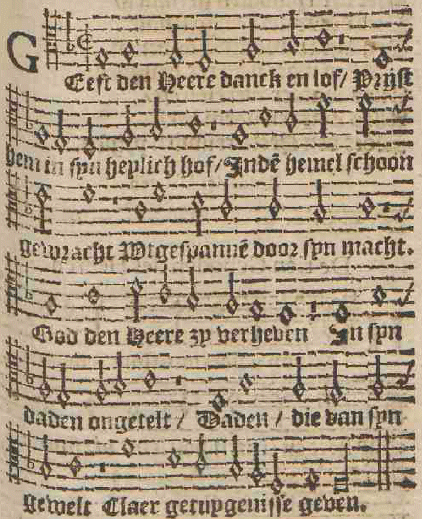 GEeft den Heere danck en lof/ Prijst
hem in syn heylich hof/ Indē hemel schoon
gewracht Wtgespannē door syn macht.
God den Heere zy verheven In syn
daden ongetelt / Daden / die van syn
gewelt Claer getuygenisse geven.